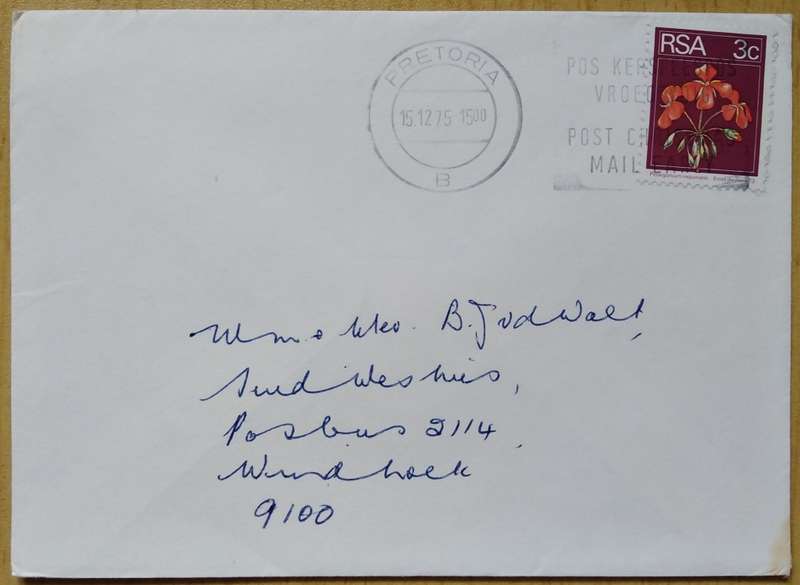 PRETORIA
15.12.75-15 00
B
POS KERS
VROEG
POST CH
MAIL
RSA 3c
Mnr. B. J vd Walt,
Suid Wes
Posbus 2114
Windhoek
9100